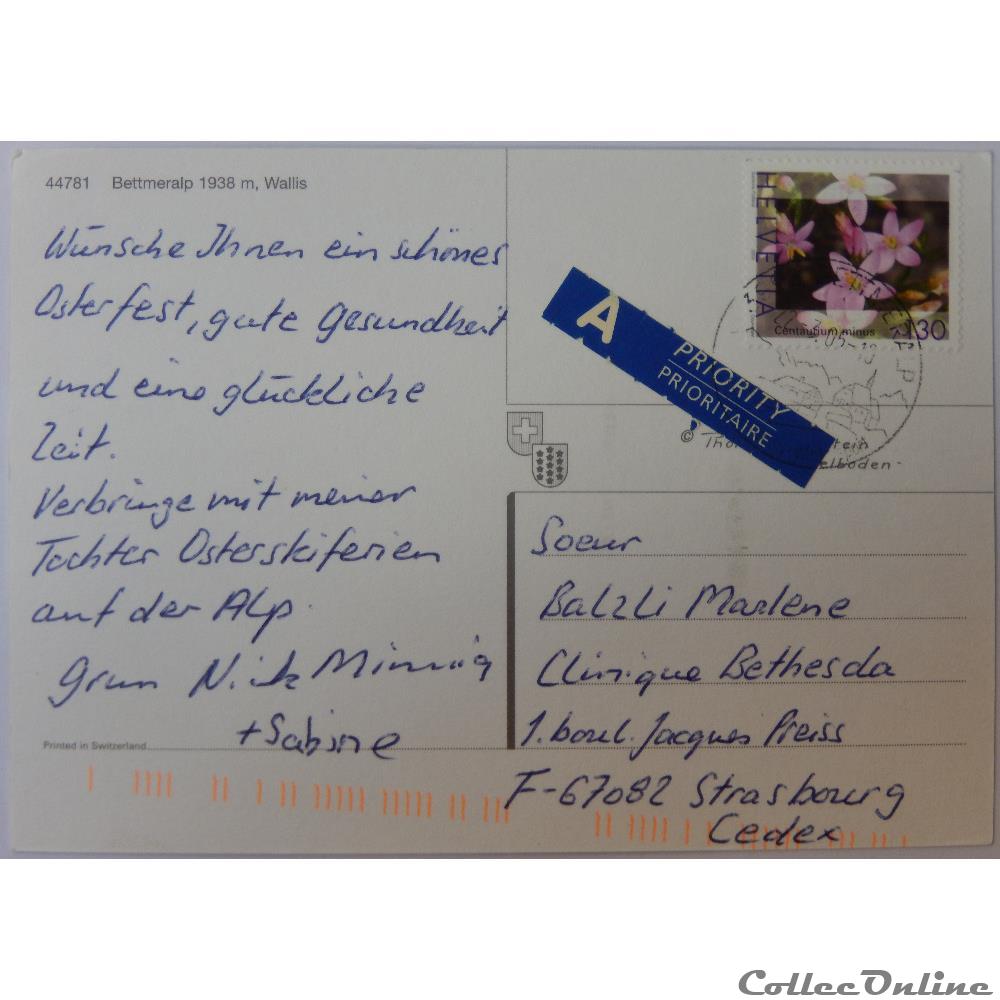 44781 Bettmeralp 1938 m, Wallis
Wünsche Ihnen ein schönes
Osterfest, gute Gesundheit
und eine glückliche
Zeit.
Verbringe mit meiner
Tochter Osterskiferien
auf der Alp.
Nick Minnig
+ Sabine
Printed in Switzerland
HELVETIA
Centaurium minus
130
A
PRIORITY
PRIORITAIRE
©
elboden
Soeur
Balzli Marlene
Clinique Bethesda
1. boul. Jacques Preiss
F-67082 Strasbourg
Cedex
CollecOnline